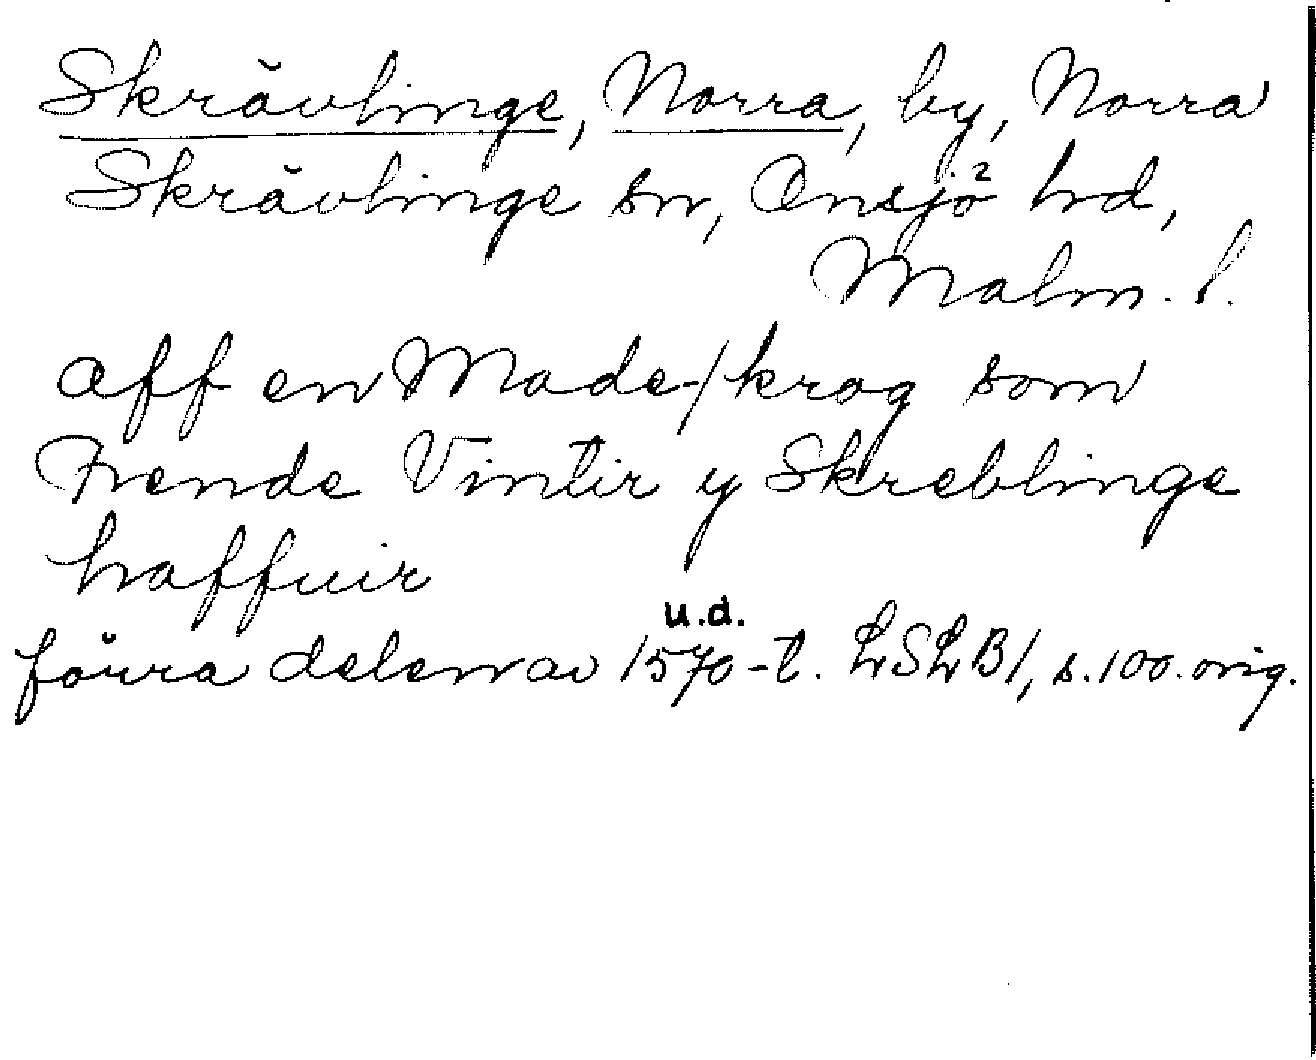 Skrävlinge, Norra, by, Norra
Skrävlinge sn, Onsjö hd,
Malm. l.
aff en Made-/krog som
Frende Vintir y Skreblinge
haffuir
u.d.
förra delen av 1570-t. LSLB1, s.100. orig.